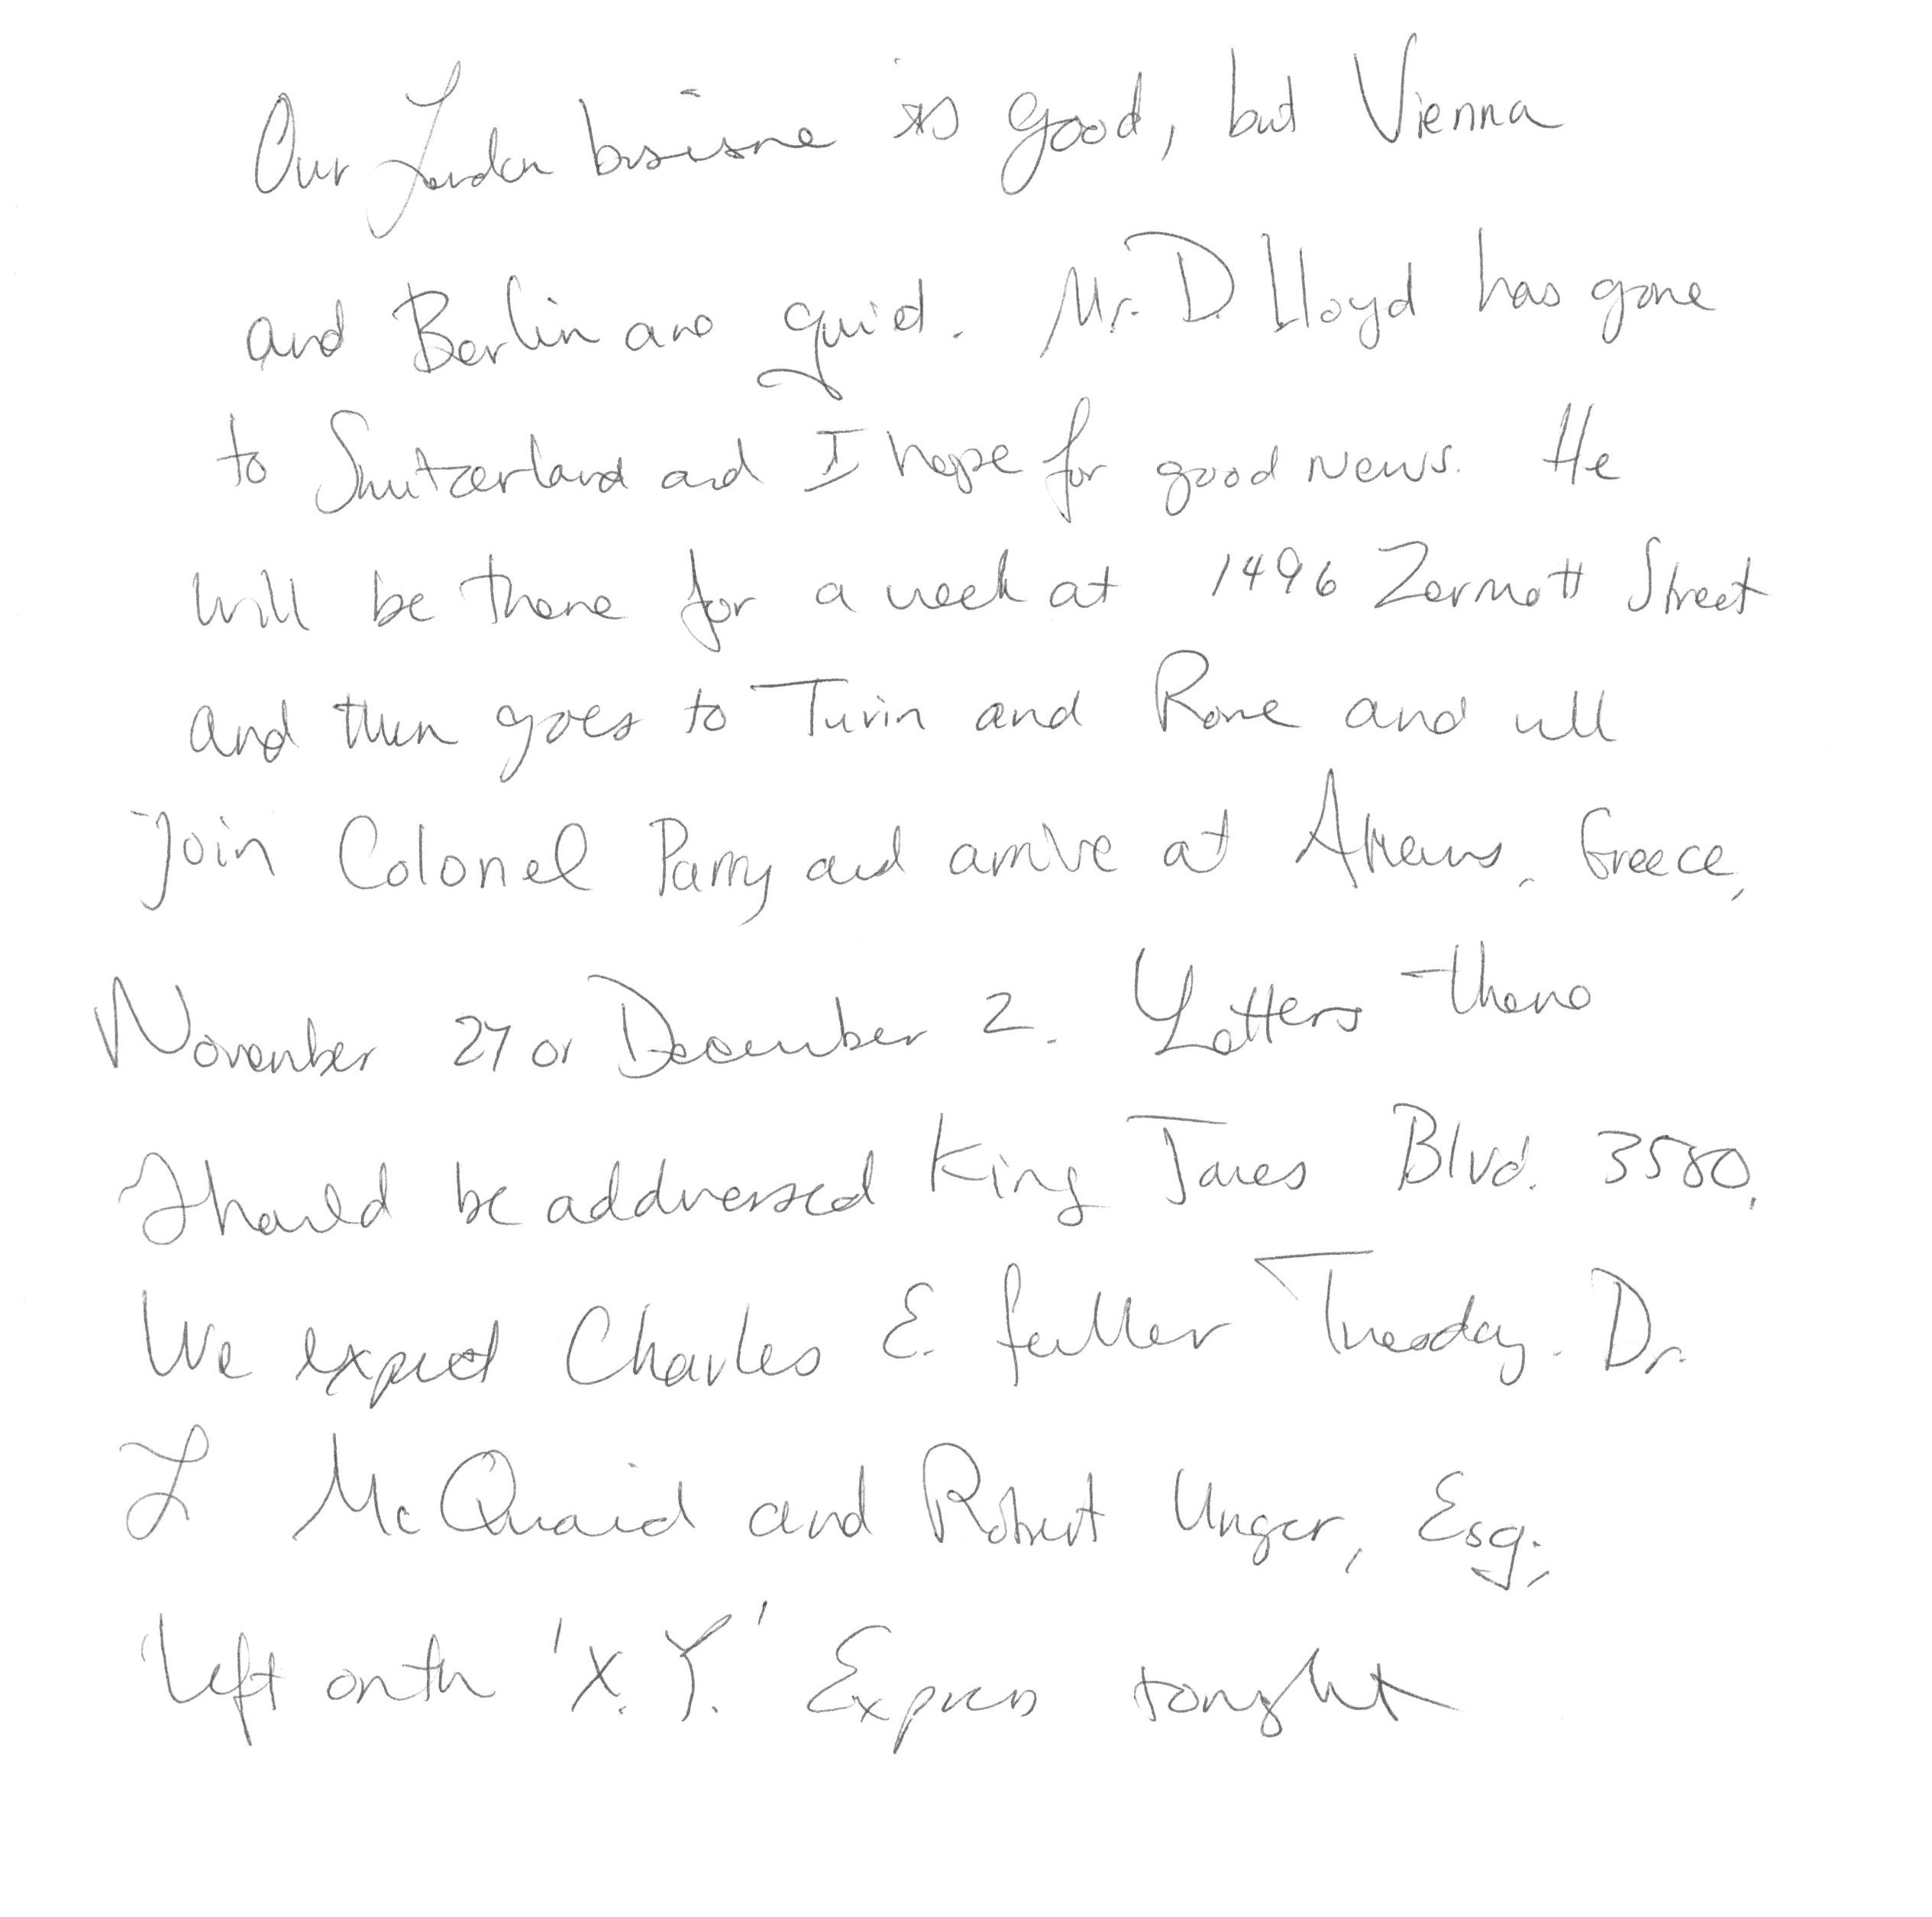 Our London business is good, but Vienna
and Berlin are quiet. Mr. D. Lloyd has gone
to Switzerland and I hope for good news. He
will be there for a week at 1496 Zermott Street
and then goes to Turin and Rome and will
join Colonel Parry and arrive at Athens, Greece,
November 27 or December 2. Letters there
should be addressed King James Blvd. 3580.
We expect Charles E. Fuller Tuesday. Dr.
L McQuaid and Robert Unger, Esq.,
left on the 'X.Y.' Express tonight